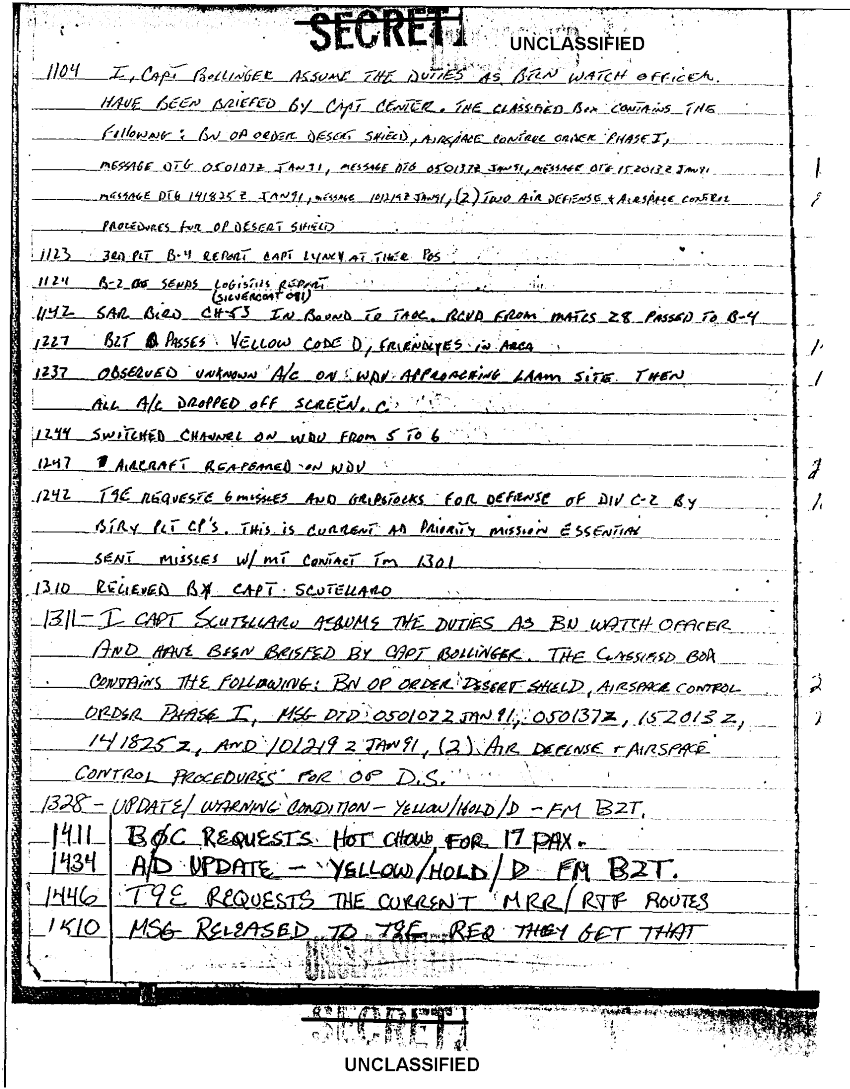 SECRET
UNCLASSIFIED
1104 I, CAPT BOLLINGER ASSUME THE DUTIES AS BTRN WATCH OFFICER.
HAVE BEEN BRIEFED BY CAPT CENTER. THE CLASSIFIED BOX CONTAINS THE
FOLLOWING: BN OP ORDER DESERT SHIELD, AIRSPACE CONTROL ORDER PHASE I,
MESSAGE DTG 050107Z JAN91, MESSAGE DTG 050137Z JAN91, MESSAGE DTG 152013Z JAN91
MESSAGE DTG 141825Z JAN91, MESSAGE 101219Z JAN91, (2) TWO AIR DEFENSE & AIRSPACE CONTROL
PROCEDURES FOR OP DESERT SHIELD
1123 3RD PLT B-4 REPORT CAPT LYNKY AT THER POS
1124 B-2 SENDS LOGISTICS REPORT
(SILVERCOAT 081)
1142 SAR BIRD CH-53 IN BOUND TO TAOC. RCVD FROM MATCS 28 PASSED TO B-4
1227 BZT PASSES YELLOW CODE D, FRIENDLYES IN AREA
1237 OBSERVED UNKNOWN A/C ON WDU APPROACHING LAAM SITE THEN
ALL A/C DROPPED OFF SCREEN.
1244 SWITCHED CHANNEL ON WDU FROM 5 TO 6
1247 AIRCRAFT REAPEARED ON WDU
1242 T9E REQUESTE 6 MISSLES AND GRIPSTOCKS FOR DEFENSE OF DIV C-2 BY
BTRY PLT CP'S. THIS IS CURRENT AD PRIORITY MISSION ESSENTIAL
SENT MISSLES W/ MT CONTACT TM 1301
1310 RELIEVED BY CAPT SCUTELLARO
1311 - I CAPT SCUTELLARO ASSUME THE DUTIES AS BN WATCH OFFICER
AND HAVE BEEN BRIEFED BY CAPT BOLLINGER. THE CLASSIFIED BOX
CONTAINS THE FOLLOWING: BN OP ORDER DESERT SHIELD, AIRSPACE CONTROL
ORDER PHASE I, MSG DTD 050107Z JAN 91, 050137Z, 152013Z,
141825Z, AND 101219Z JAN 91, (2) AIR DEFENSE + AIRSPACE
CONTROL PROCEDURES FOR OP D.S.
1328 - UPDATE/ WARNING CONDITION - YELLOW/HOLD/D - FM BZT.
1411 BØC REQUESTS HOT CHOW FOR 17 PAX.
1434 A/D UPDATE - YELLOW/HOLD/D FM BZT.
1446 T9E REQUESTS THE CURRENT MRR/RTF ROUTES
1510 MSG RELEASED TO T9E REQ THEY GET THAT
UNCLASSIFIED
SECRET
UNCLASSIFIED